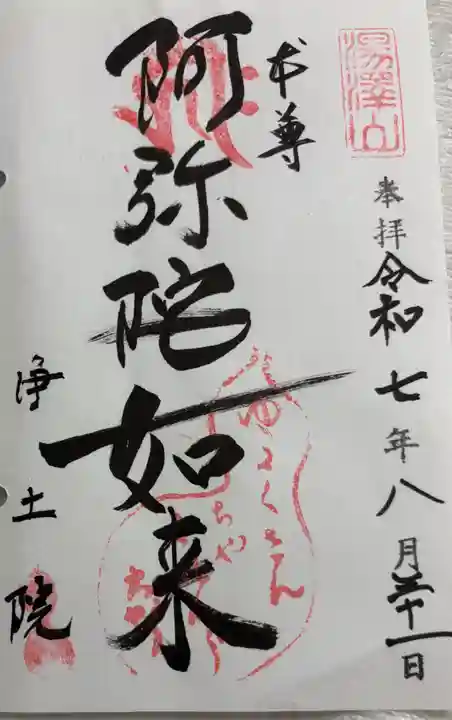 湯澤山
奉拝 令和七年八月三十一日
本尊
阿弥陀如来
浄土院